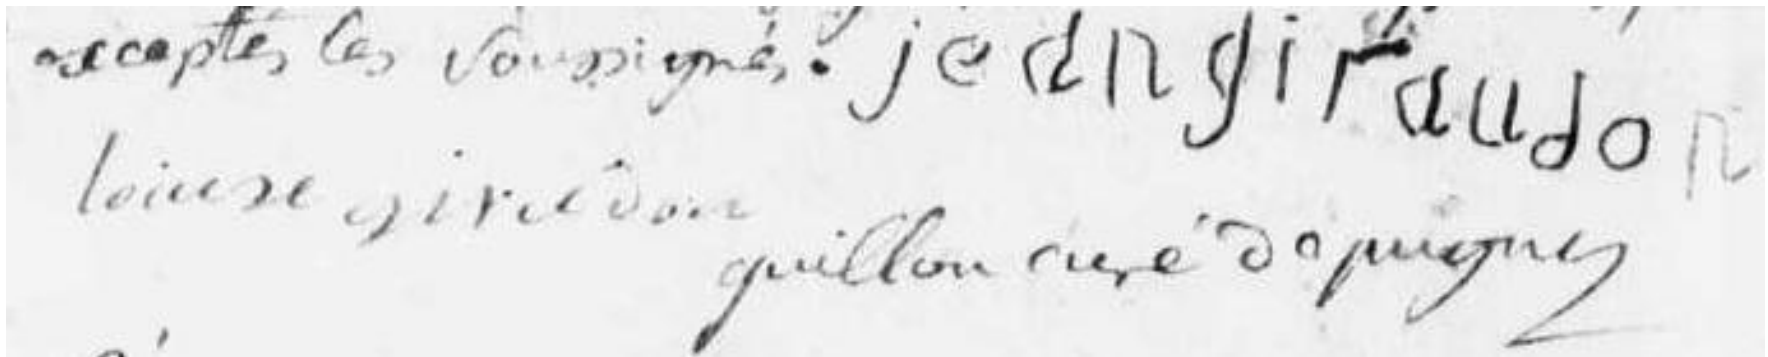 exceptés les soussignés. jean giraudon
louise giraudon
guillon curé d'apugny